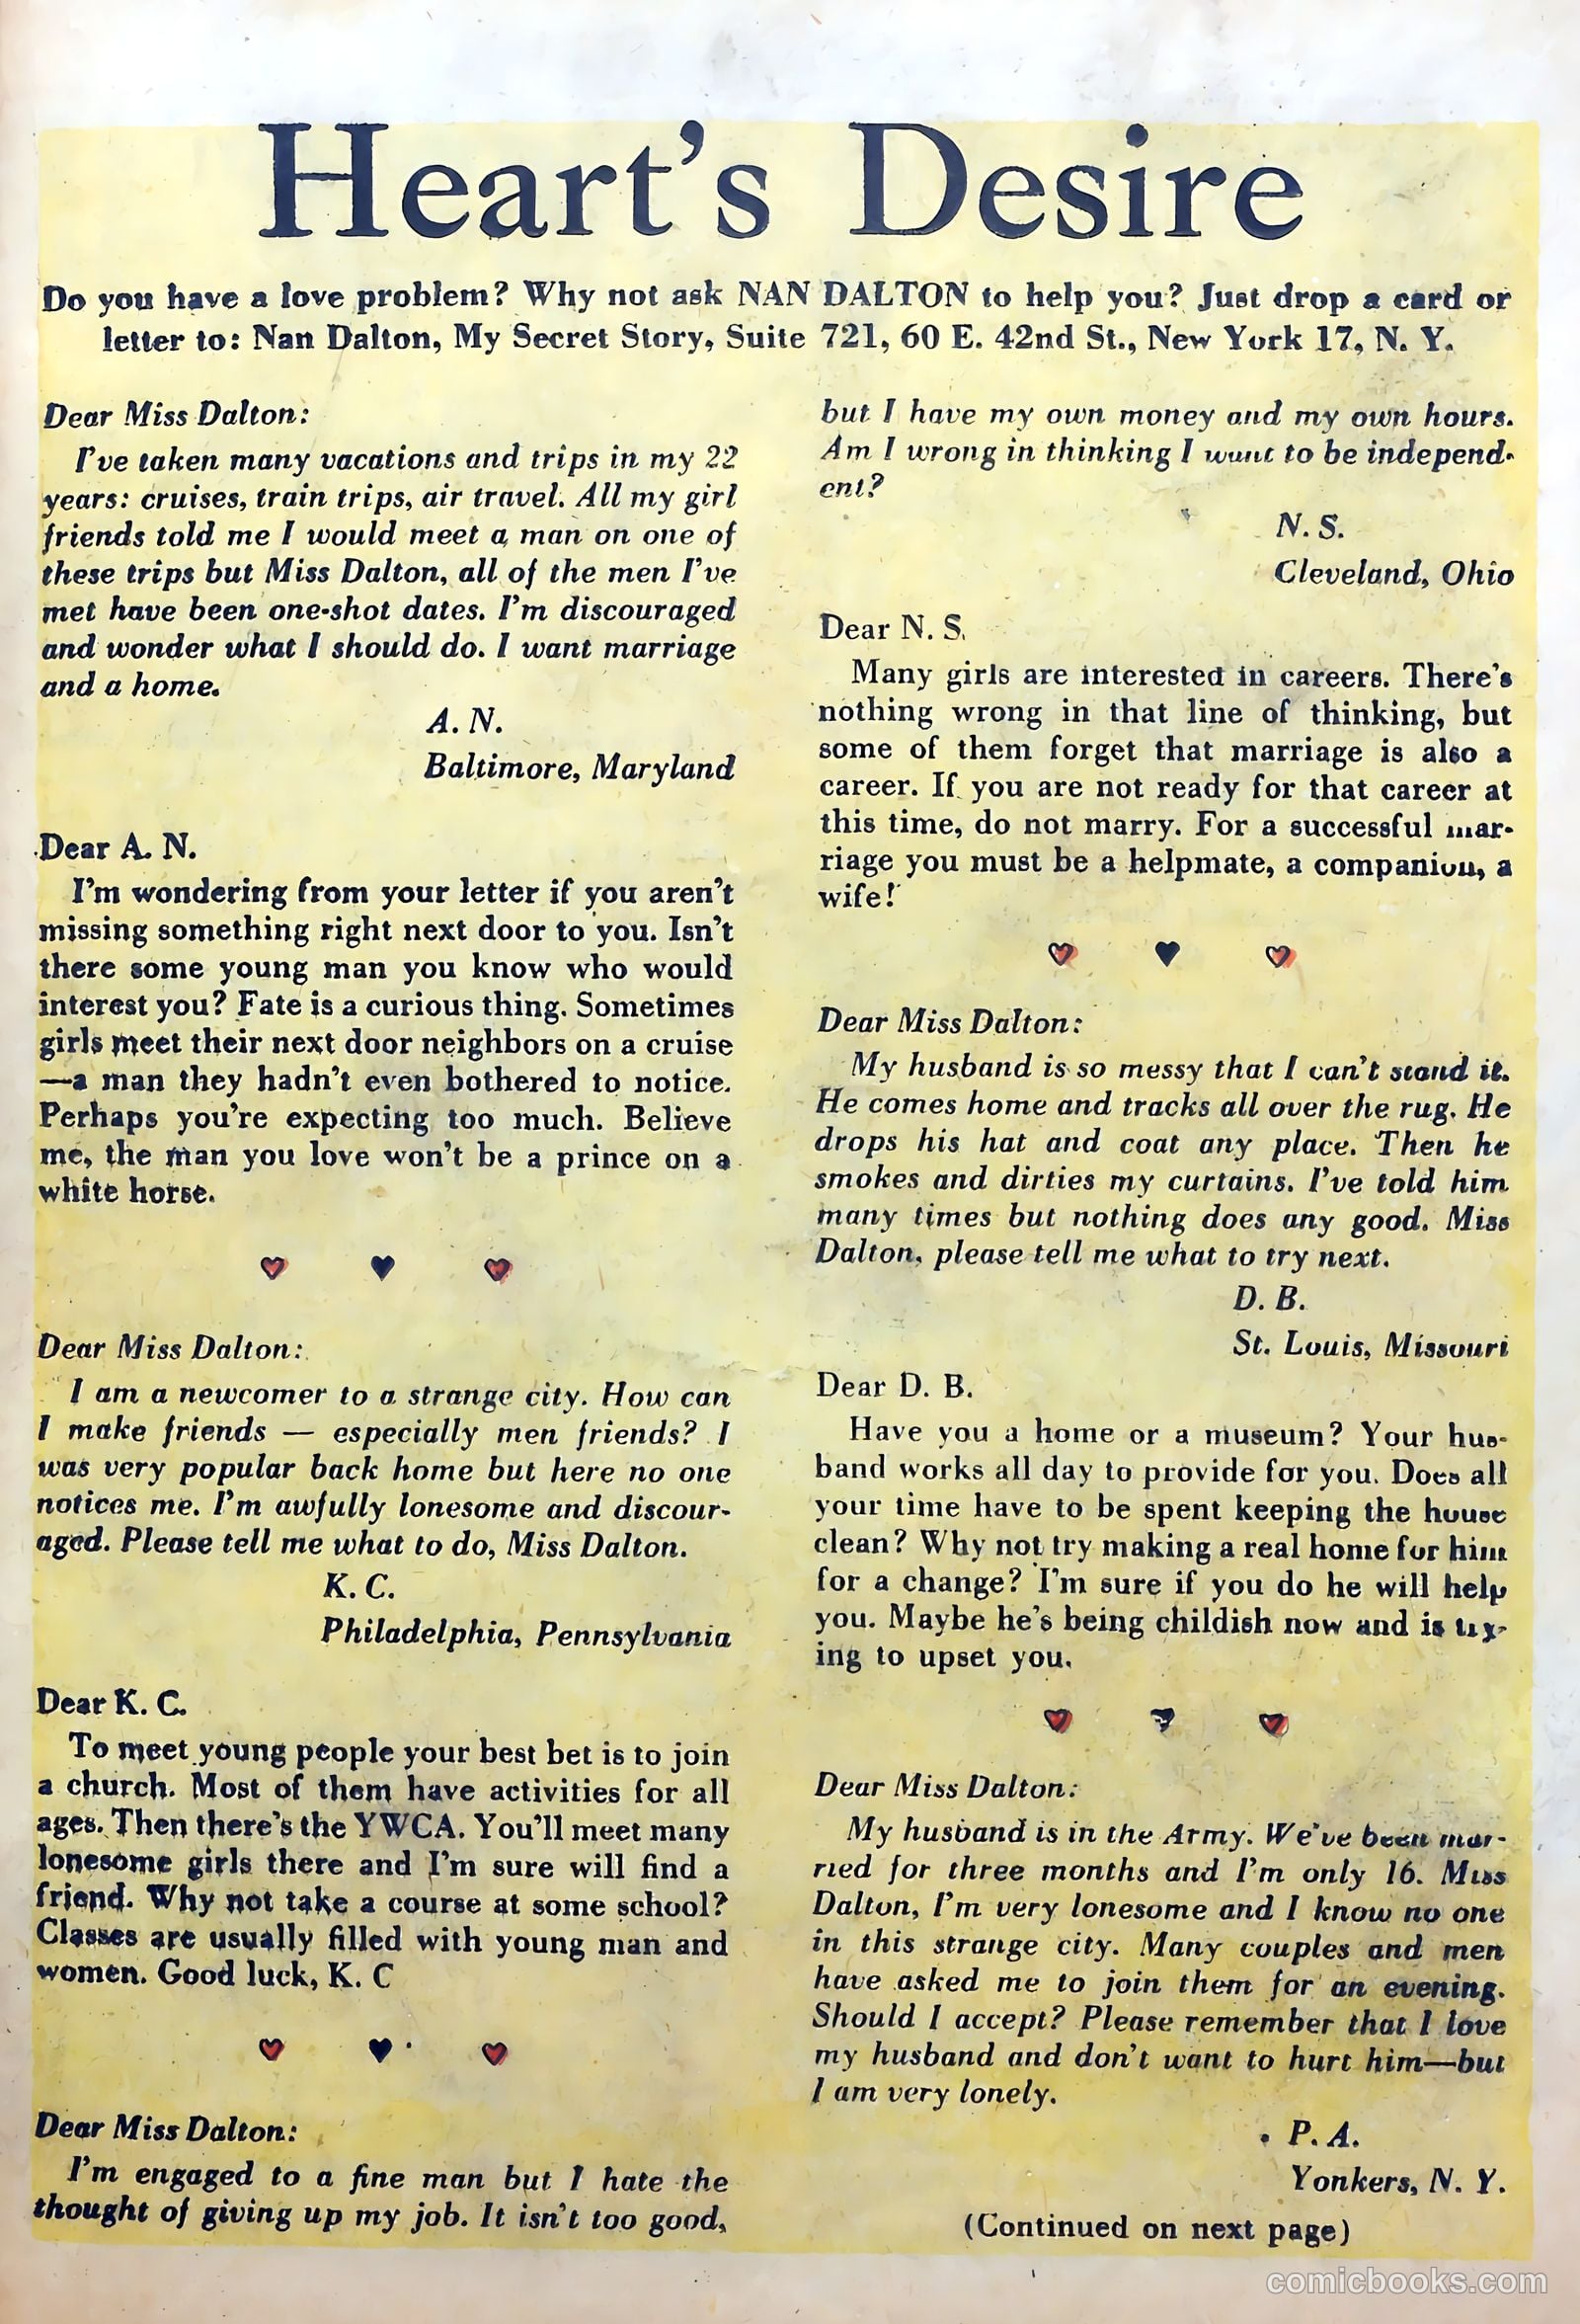 Heart's Desire
Do you have a love problem? Why not ask NAN DALTON to help you? Just drop a card or
letter to: Nan Dalton, My Secret Story, Suite 721, 60 E. 42nd St., New York 17, N. Y.
Dear Miss Dalton:
I've taken many vacations and trips in my 22
years: cruises, train trips, air travel. All my girl
friends told me I would meet a man on one of
these trips but Miss Dalton, all of the men I've
met have been one-shot dates. I'm discouraged
and wonder what I should do. I want marriage
and a home.
A. N.
Baltimore, Maryland
Dear A. N.
I'm wondering from your letter if you aren't
missing something right next door to you. Isn't
there some young man you know who would
interest you? Fate is a curious thing. Sometimes
girls meet their next door neighbors on a cruise
—a man they hadn't even bothered to notice.
Perhaps you're expecting too much. Believe
me, the man you love won't be a prince on a
white horse.
Dear Miss Dalton:
I am a newcomer to a strange city. How can
I make friends — especially men friends? I
was very popular back home but here no one
notices me. I'm awfully lonesome and discour-
aged. Please tell me what to do, Miss Dalton.
K. C.
Philadelphia, Pennsylvania
Dear K. C.
To meet young people your best bet is to join
a church. Most of them have activities for all
ages. Then there's the YWCA. You'll meet many
lonesome girls there and I'm sure will find a
friend. Why not take a course at some school?
Classes are usually filled with young man and
women. Good luck, K. C
Dear Miss Dalton:
I'm engaged to a fine man but I hate the
thought of giving up my job. It isn't too good,
but I have my own money and my own hours.
Am I wrong in thinking I want to be independ-
ent?
N. S.
Cleveland, Ohio
Dear N. S.
Many girls are interested in careers. There's
nothing wrong in that line of thinking, but
some of them forget that marriage is also a
career. If you are not ready for that career at
this time, do not marry. For a successful mar-
riage you must be a helpmate, a companion, a
wife!
Dear Miss Dalton:
My husband is so messy that I can't stand it.
He comes home and tracks all over the rug. He
drops his hat and coat any place. Then he
smokes and dirties my curtains. I've told him
many times but nothing does any good. Miss
Dalton, please tell me what to try next.
D. B.
St. Louis, Missouri
Dear D. B.
Have you a home or a museum? Your hus-
band works all day to provide for you. Does all
your time have to be spent keeping the house
clean? Why not try making a real home for him
for a change? I'm sure if you do he will help
you. Maybe he's being childish now and is try-
ing to upset you.
Dear Miss Dalton:
My husband is in the Army. We've been mar-
ried for three months and I'm only 16. Miss
Dalton, I'm very lonesome and I know no one
in this strange city. Many couples and men
have asked me to join them for an evening.
Should I accept? Please remember that I love
my husband and don't want to hurt him—but
I am very lonely.
P. A.
Yonkers, N. Y.
(Continued on next page)
comicbooks.com